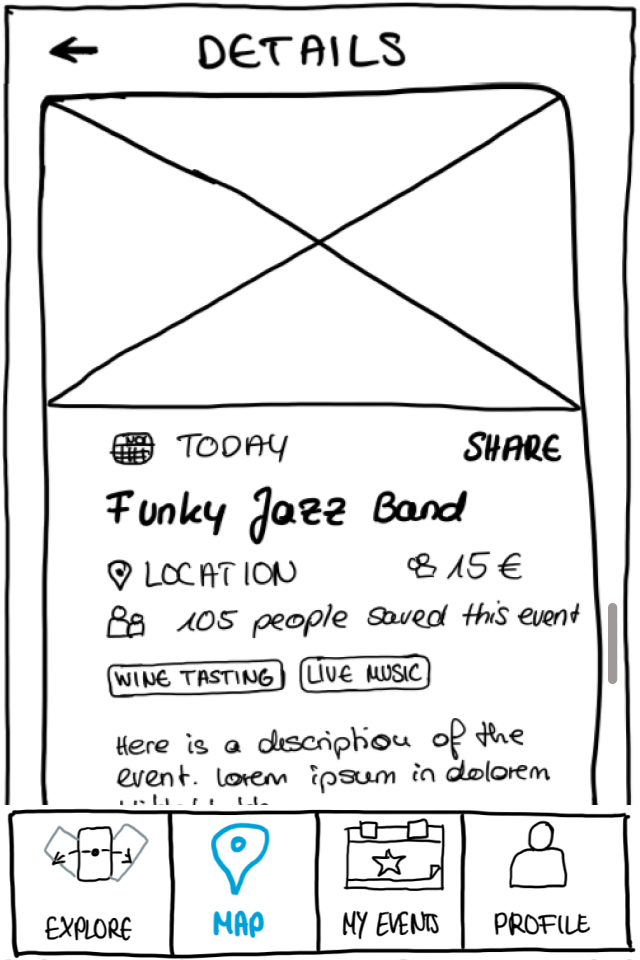 DETAILS
TODAY SHARE
Funky Jazz Band
LOCATION 15 €
105 people saved this event
WINE TASTING LIVE MUSIC
Here is a description of the
event. Lorem ipsum in dolorem
EXPLORE MAP MY EVENTS PROFILE